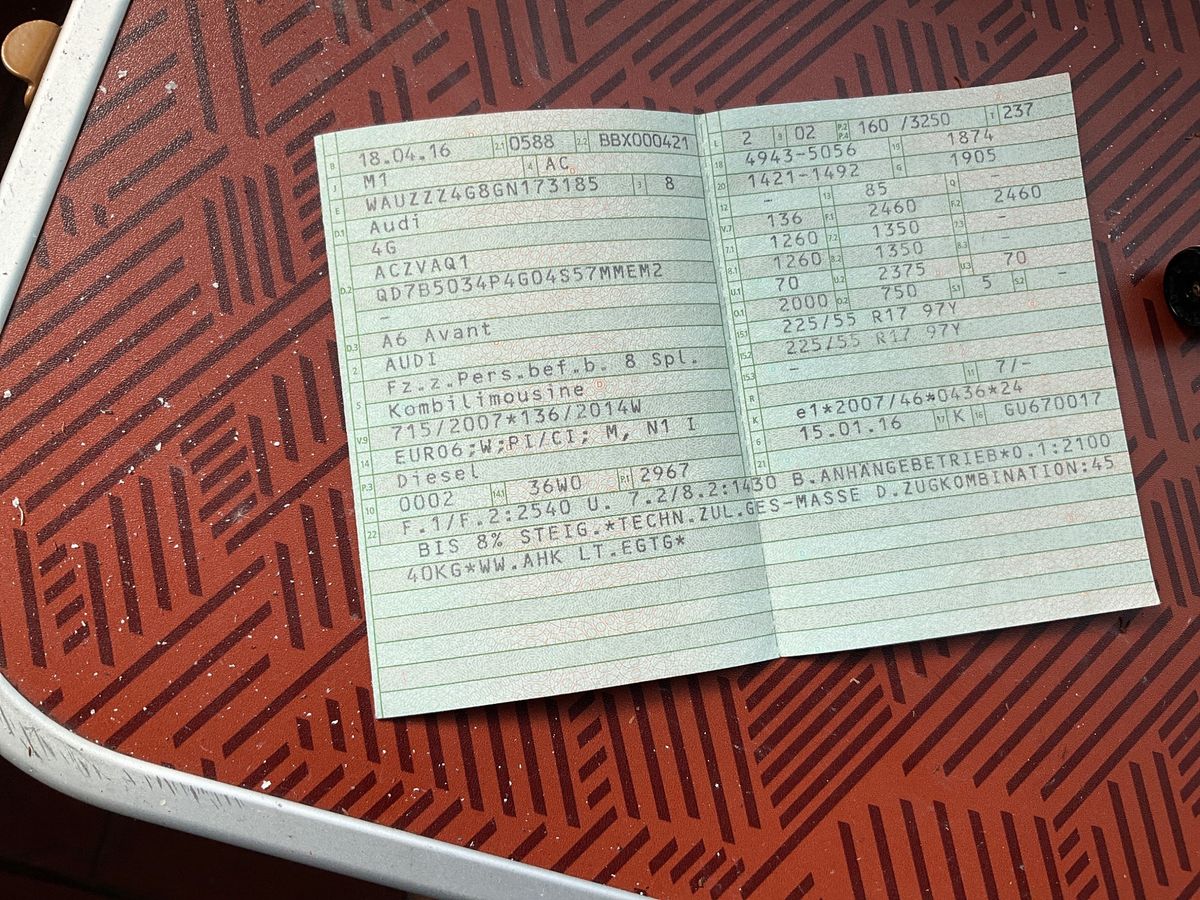 B 18.04.16 2.1 0588 2.2 BBX000421
J M1 4 AC
E WAUZZZ4G8GN173185 3 8
D.1 Audi
4G
D.2 ACZVAQ1
QD7B5034P4G04S57MMEM2
-
D.3 A6 Avant
2 AUDI
5 Fz.z.Pers.bef.b. 8 Spl.
Kombilimousine
V.9 715/2007*136/2014W
14 EURO6;W;PI/CI; M, N1 I
P.3 Diesel
10 0002 14.1 36W0 P.1 2967
22 F.1/F.2:2540 U. 7.2/8.2:1430 B.ANHÄNGEBETRIEB*O.1:2100
BIS 8% STEIG.*TECHN.ZUL.GES-MASSE D.ZUGKOMBINATION:45
40KG*WW.AHK LT.EGTG*
L 2 9 02 P.2 P.4 160 /3250 T 237
18 4943-5056 19 1874
20 1421-1492 G 1905
12 - 13 85 Q -
V.7 136 F.1 2460 F.2 2460
7.1 1260 7.2 1350 7.3 -
8.1 1260 8.2 1350 8.3 -
U.1 70 U.2 2375 U.3 70
O.1 2000 O.2 750 S.1 5 S.2 -
15.1 225/55 R17 97Y
15.2 225/55 R17 97Y
15.3 -
R 11 7/-
K e1*2007/46*0436*24
6 15.01.16 17 K 16 GU670017
21